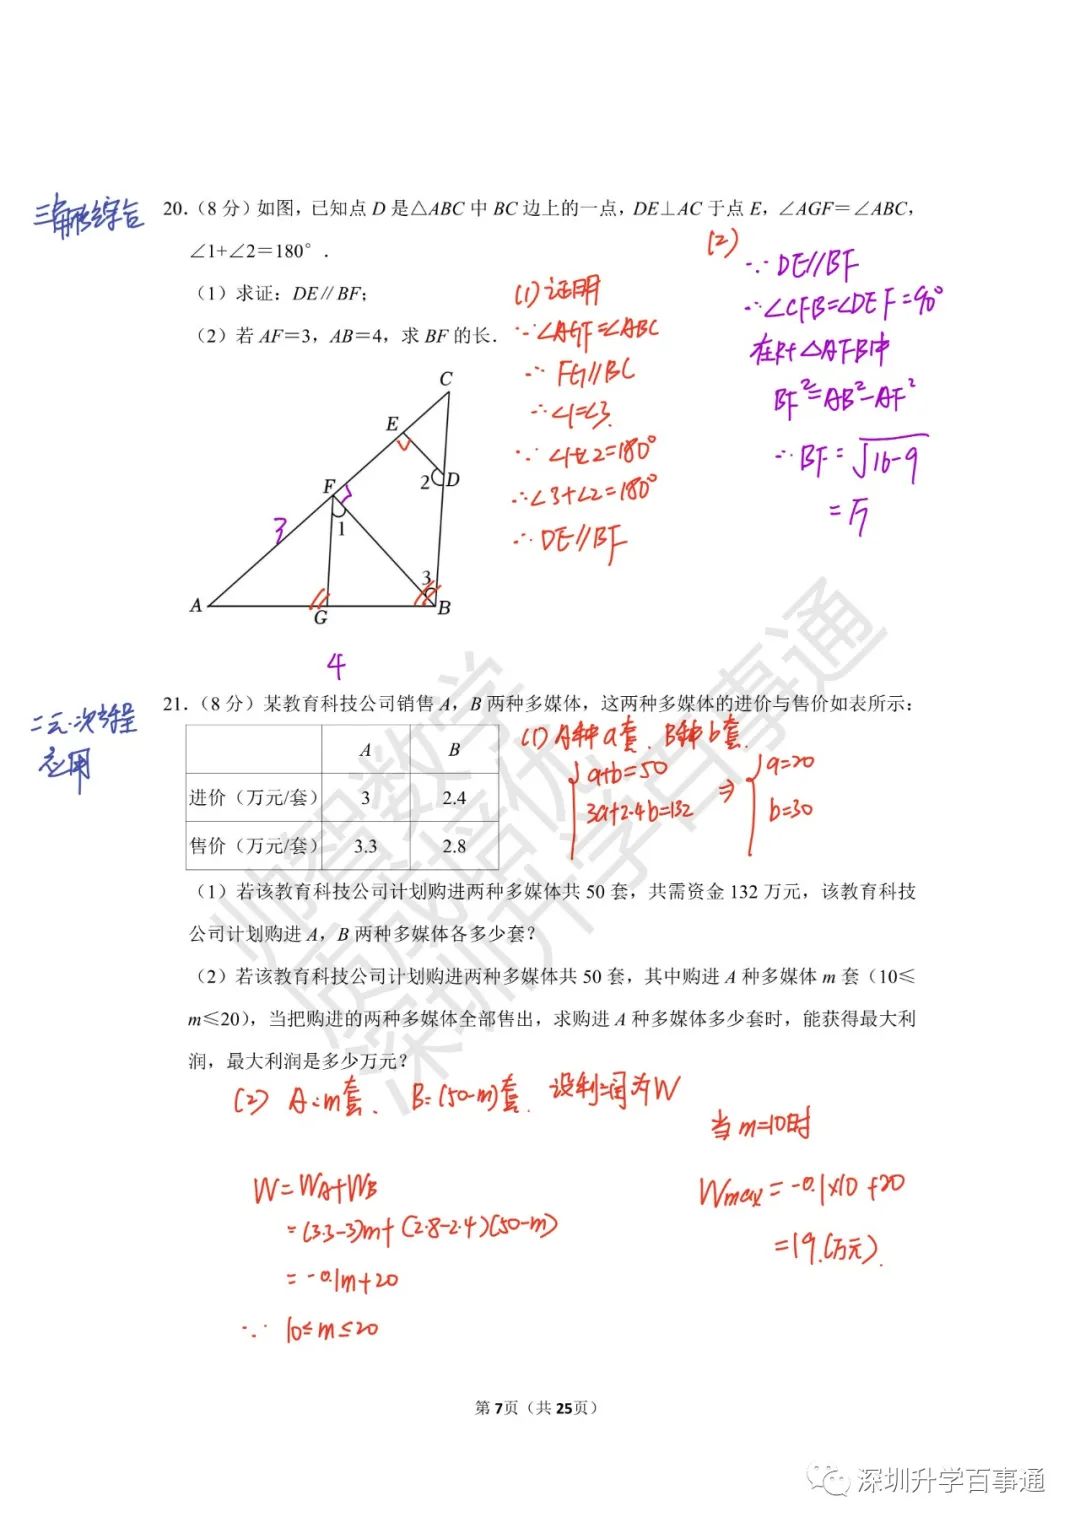 三角形综合
20.（8 分）如图，已知点 D 是△ABC 中 BC 边上的一点，DE⊥AC 于点 E，∠AGF＝∠ABC，
∠1+∠2＝180°．
（1）求证：DE∥BF；
（2）若 AF＝3，AB＝4，求 BF 的长．
(1) 证明
∵∠AGF=∠ABC
∴ FG∥BC
∴∠1=∠3
∵ ∠1+∠2=180°
∴∠3+∠2=180°
∴ DE∥BF
(2)
∵ DE∥BF
∴∠CFB=∠DEF=90°
在Rt△AFB中
BF²=AB²-AF²
∴ BF=√16-9
=√7
C
E
2
D
F
1
3
3
A
G
B
4
二元一次方程
应用
21.（8 分）某教育科技公司销售 A，B 两种多媒体，这两种多媒体的进价与售价如表所示：
A B
进价（万元/套） 3 2.4
售价（万元/套） 3.3 2.8
(1) A种a套、B种b套
a+b=50
3a+2.4b=132
⇒
a=20
b=30
（1）若该教育科技公司计划购进两种多媒体共 50 套，共需资金 132 万元，该教育科技
公司计划购进 A，B 两种多媒体各多少套？
（2）若该教育科技公司计划购进两种多媒体共 50 套，其中购进 A 种多媒体 m 套（10≤
m≤20），当把购进的两种多媒体全部售出，求购进 A 种多媒体多少套时，能获得最大利
润，最大利润是多少万元？
(2) A：m套、 B：(50-m)套、 设利润为W
W=WA+WB
=(3.3-3)m+(2.8-2.4)(50-m)
=-0.1m+20
∵ 10≤m≤20
当m=10时
Wmax=-0.1×10+20
=19.(万元).
第 7页（共 25页）
深圳升学百事通
帅智数学
质成培优
深圳升学百事通